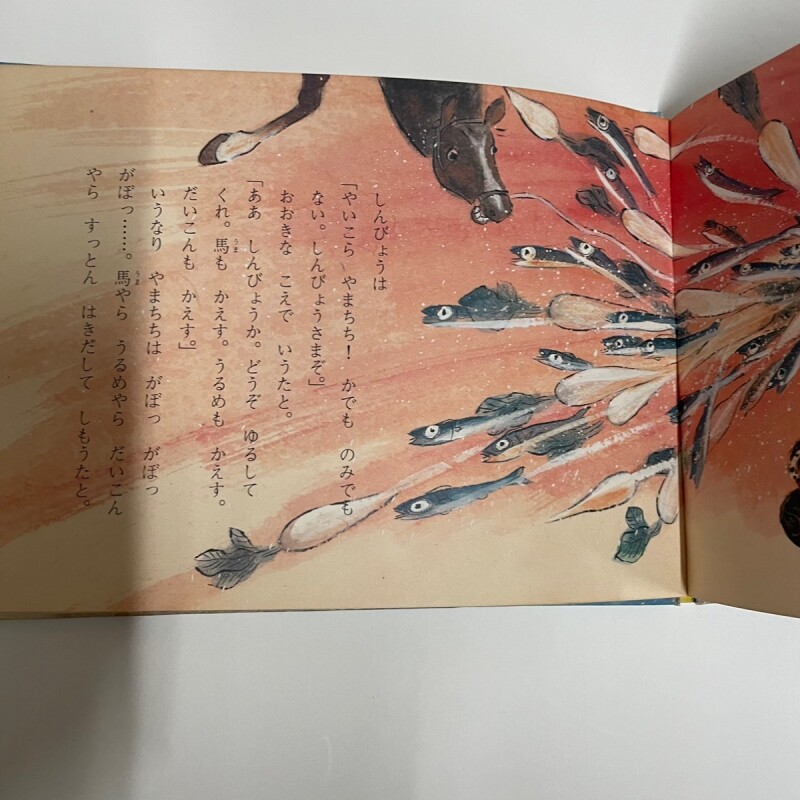 しんぴょうは
「やいこら やまちち! かでも のみでも
ない。しんぴょうさまぞ。」
おおきな こえで いうたと。
「ああ しんぴょうか。どうぞ ゆるして
くれ。馬も かえす。うるめも かえす。
だいこんも かえす。」
いうなり やまちちは がぼっ がぼっ
がぼっ……。馬やら うるめやら だいこん
やら すっとん はきだして しもうたと。